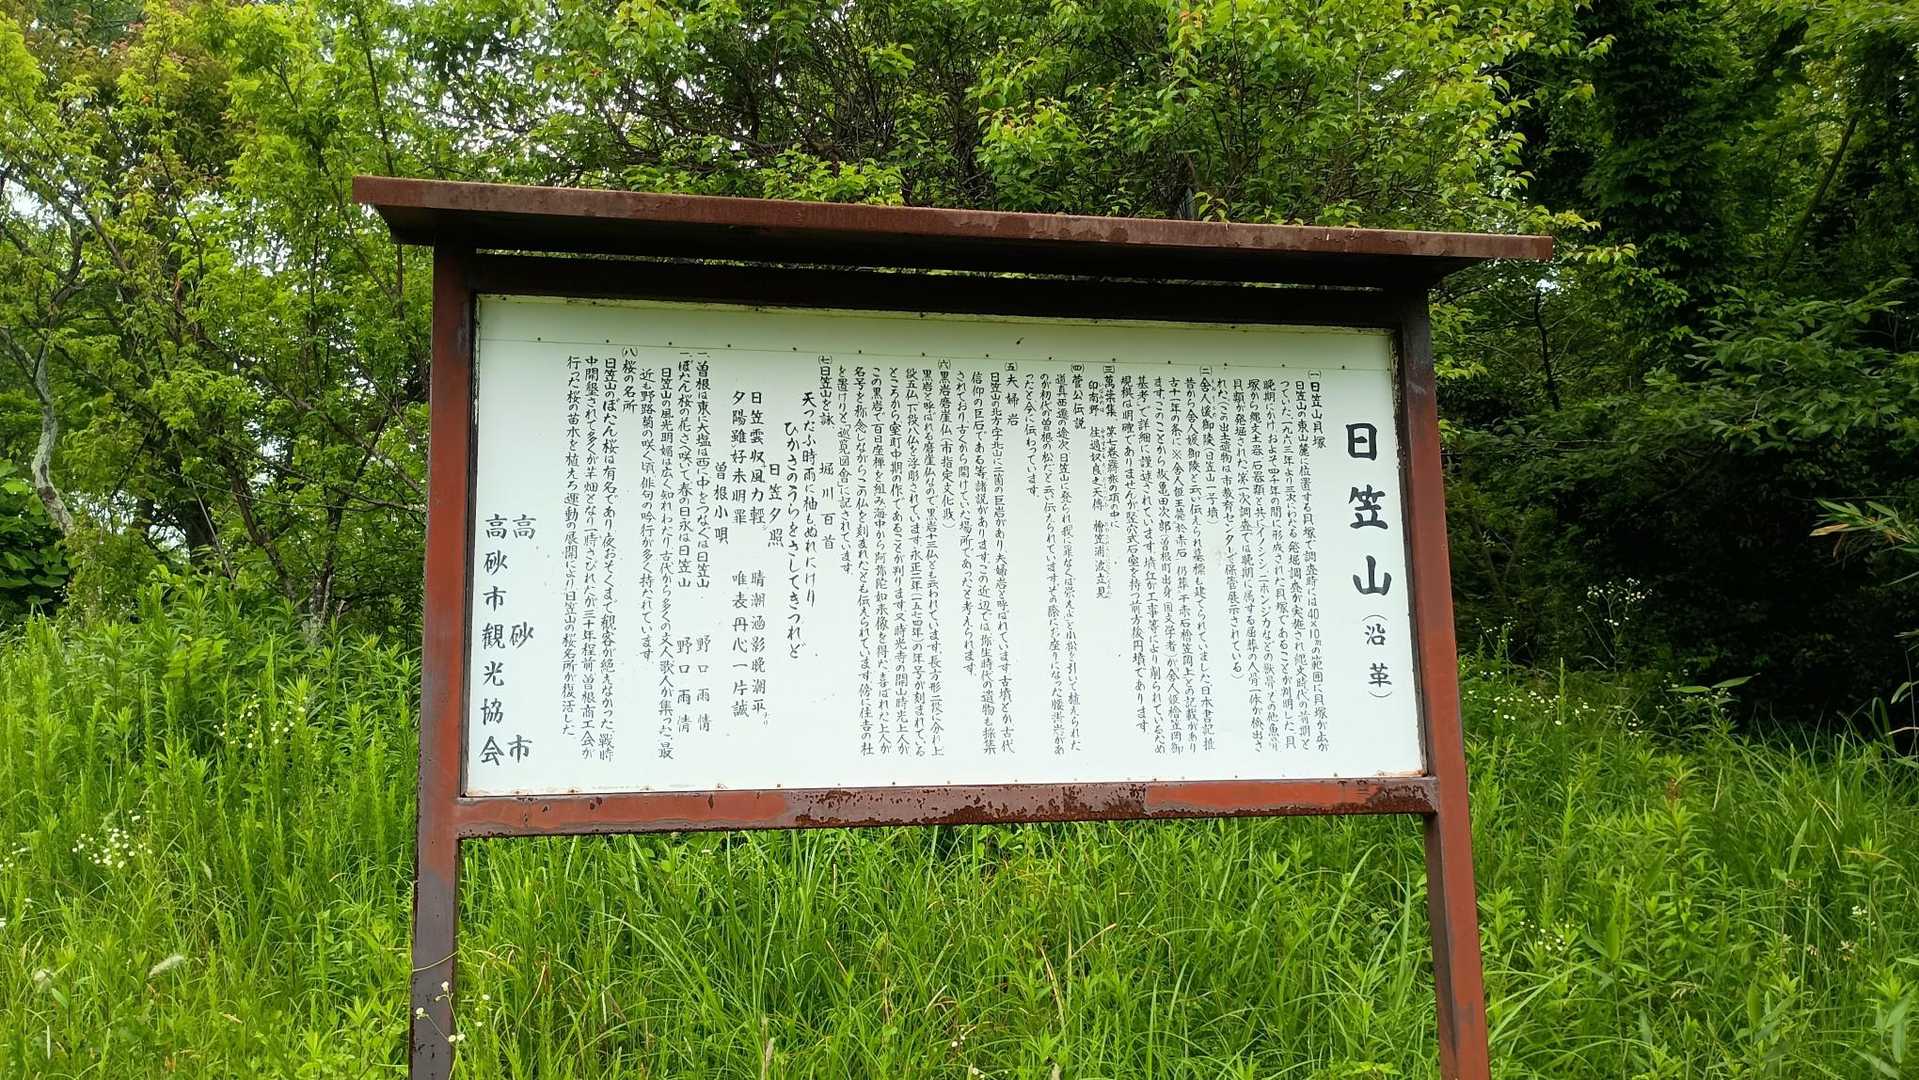 日笠山(沿革)
㈠日笠山貝塚
日笠山の東山麓に位置する貝塚で調査時には40×10mの範囲に貝塚が広が
っていた。一九六三年より三次にわたる発掘調査が実施され縄文時代の前期と
晩期にかけ、およそ四千年の間に形成された貝塚であることが判明した。貝
塚から縄文土器、石器類と共にイノシシ、ニホンジカなどの獣骨その他魚骨
貝類が発掘された。第一次調査では晩期に属する屈葬の人骨一体が検出さ
れた。(この出土遺物は市教育センターに保管展示されている)
㈡舎人倭御陵(日笠山一号墳)
昔から舎人倭御陵と云い伝えられ墓標も建てられていました。日本書記推
古十一年の条に※舎人姫王薨於赤石 仍葬干赤石桧笠岡上との記載があり
基考」で詳細に謹述されています。
規模は明確でありませんが竪穴式石室を持つ前方後円墳であります。
㈢萬葉集 第七巻羇旅の項の中に
印南野 往過奴良之天傳 檜笠浦波立見
㈣菅公伝説
道真西遷の途次、日笠山に登られ「我に罪なくば栄えよ」と小松を引いて植えられた
のが初代の曽根の松だと云い伝えられていますその際にお座りになった腰掛岩があ
ったと今に伝わっています。
㈤夫婦岩
日笠山の北方字北山に二箇の巨岩があり、夫婦岩と呼ばれています。古墳とか古代
信仰の巨石である等諸説があります。この近辺では弥生時代の遺物も採集
されており古くから開けていた場所であったと考えられます。
㈥黒岩磨崖仏(市指定文化財)
黒岩と呼ばれる磨崖仏なので黒岩十三仏とも云われています。長方形二段に分け上
段五仏、下段八仏を浮彫されています。永正二年(一五七四年)の年号が刻まれている
ところから室町中期の作であることが判ります。又時光寺の開山時光上人が
この黒岩で百日座禅を組み海中から阿弥陀如来像を得た。喜ばれた上人が
名号を称念しながらこの仏を刻まれたとも伝えられています。傍に住吉の社
を置けりと「巡覧図會」に記されています。
㈦日笠山を詠 堀川百首
天つたふ時雨に袖もぬれにけり
ひかさのうらをさしてきつれど
日笠夕照
日笠雲収風力軽 晴潮涵影晩潮平
夕陽雖好未明罪 唯表丹心一片誠
曽根小唄
一、曽根は東に大塩は西に中をつなぐは日笠山 野口雨情
一、ぼたん桜の花さへ咲いて春の日永は日笠山 野口雨情
日笠山の風光明媚は広く知れわたり古代から多くの文人歌人が集った。最
近も野路菊の咲く頃俳句の吟行が多く持たれています。
㈧桜の名所
日笠山のぼたん桜は有名であり夜おそくまで観客が絶えなかった。戦時
中開墾されて多くが芋畑となり一時さびれたが三十年程前、曽根商工会が
行った桜の苗木を植えろ運動の展開により日笠山の桜名所が復活した。
高砂市
高砂市観光協会